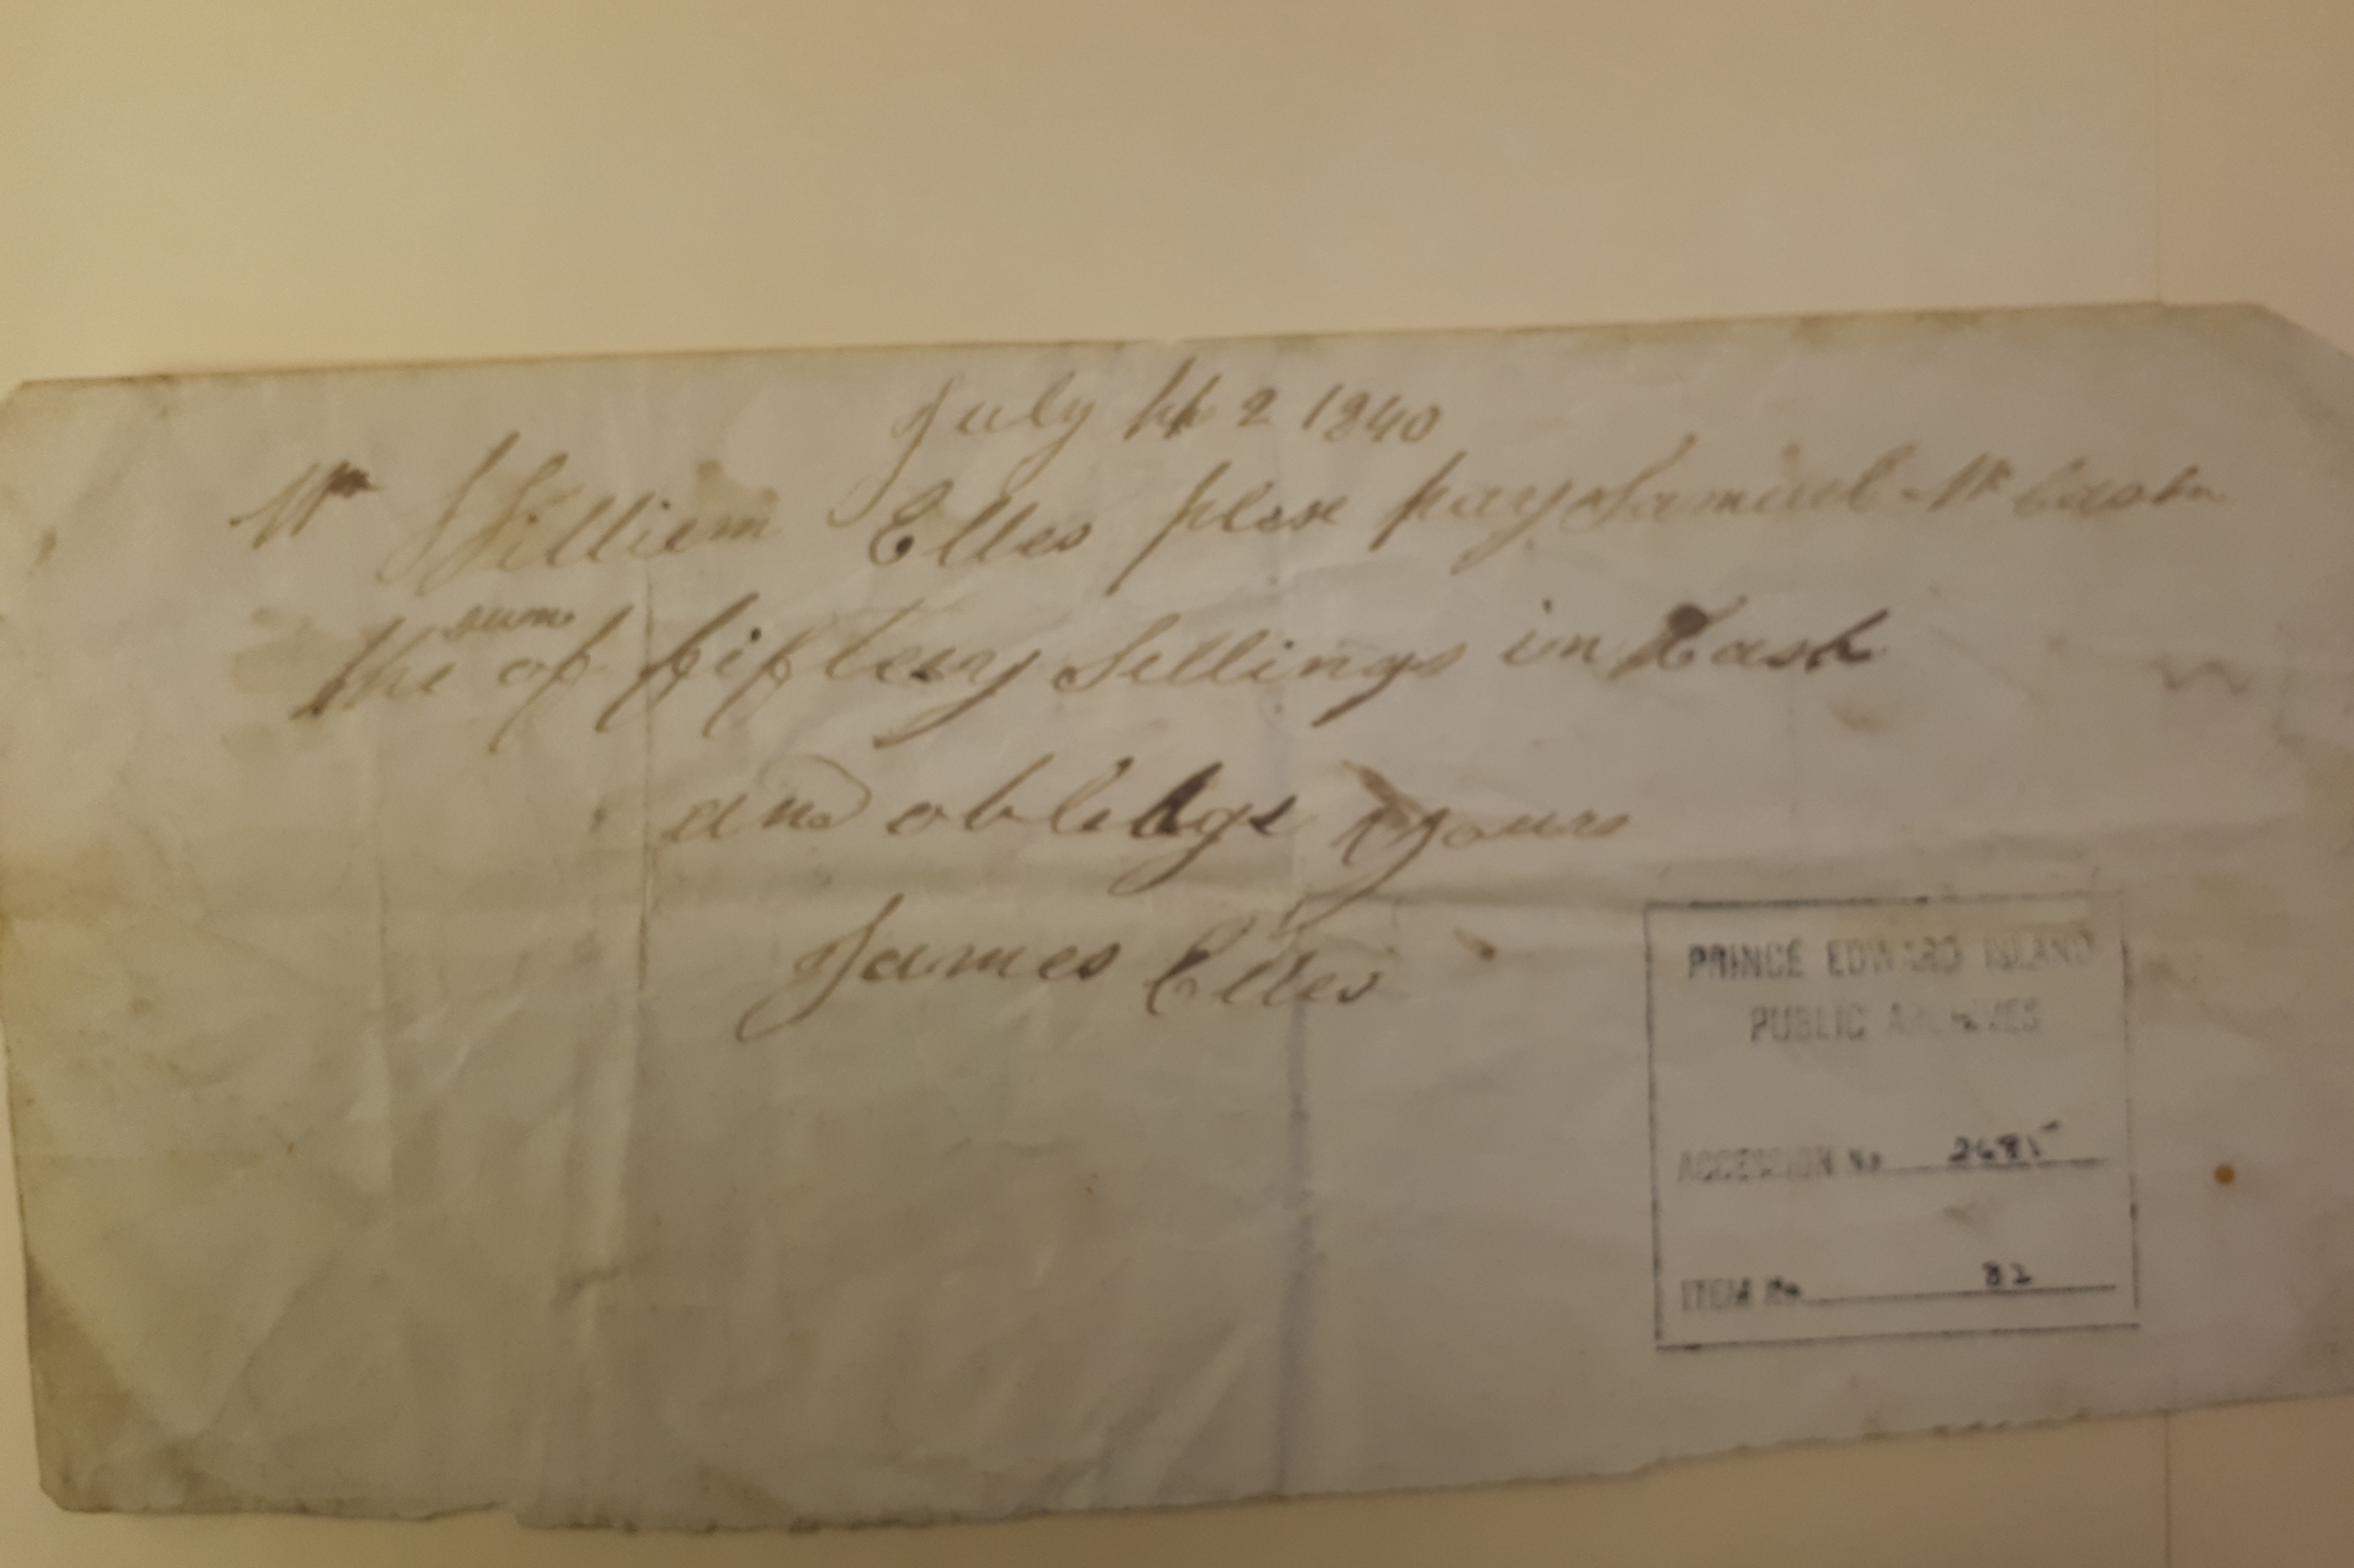 July th 2 1840
Mr Williem Elles plese pay Samuel
sum
the of fiftey sellings in Cash
and oblidge yours
James Elles
PRINCE EDWARD ISLAND
PUBLIC ARCHIVES
ACCESSION No 2685
ITEM No 82